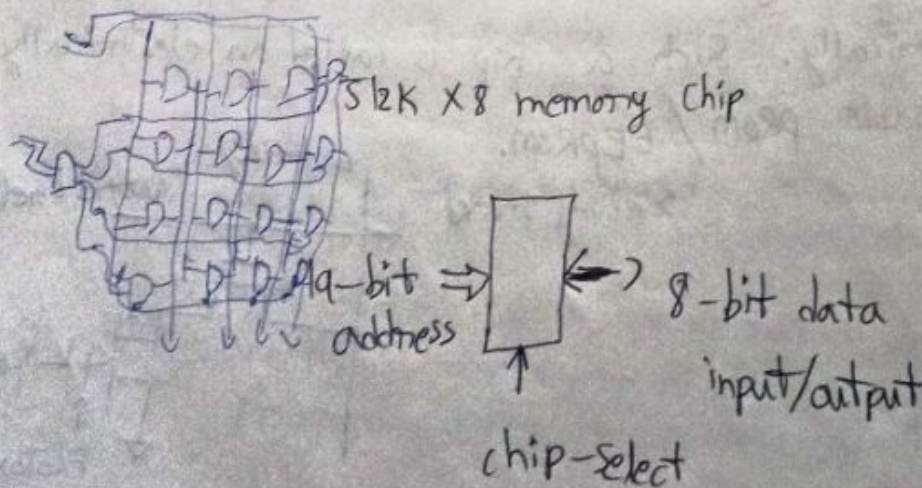 512K X 8 memory chip
19-bit
address
8-bit data
input/output
chip-select